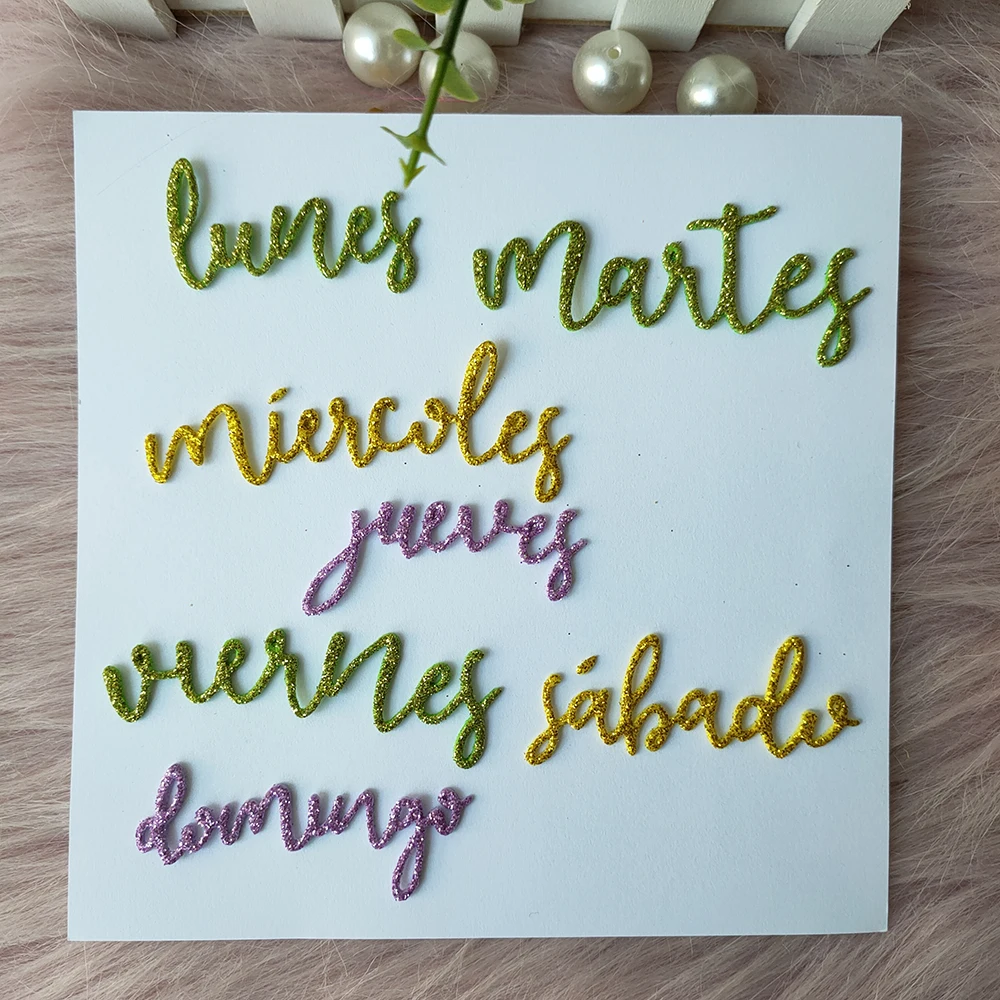 lunes martes
míercoles
jueves
viernes sábado
domingo